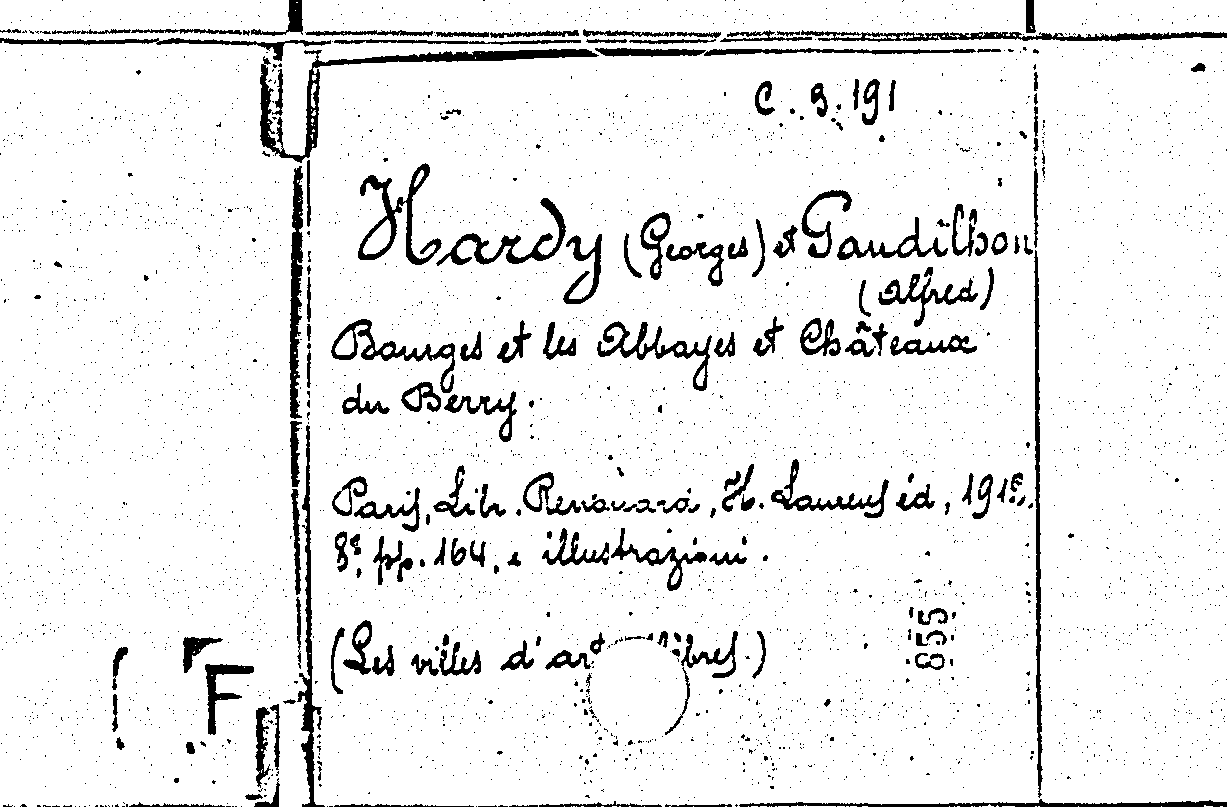 C. 3. 191
Hardy (Georges) et Gaudilhon
(Alfred)
Bourges et les Abbayes et Châteaux
du Berry.
Paris, Libr. Renouard, H. Laurens éd,
8°, pp. 164, e illustrazioni.
(Les villes d'art
855
F